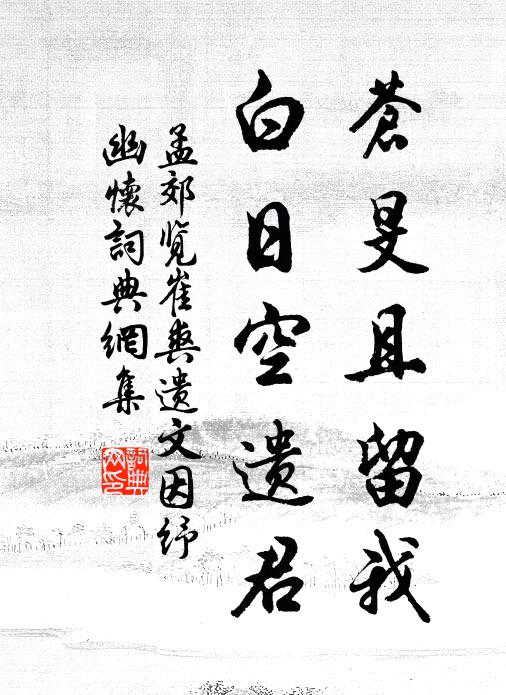 蒼旻且留我
白日空遺君
孟郊览崔爽遗文因纾
幽懷詞典網集
詞典網印